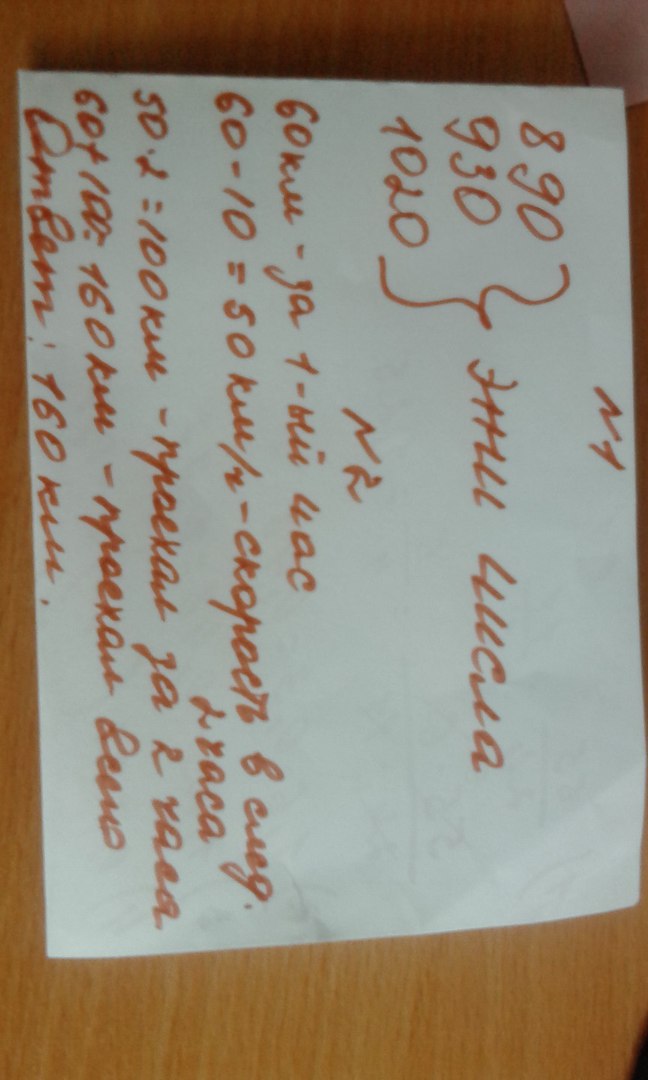 N1
890
930 } эти числа
1020
N2
60 км - за 1-ый час
60 - 10 = 50 км/ч - скорость в след.
2 часа
50 · 2 = 100 км - проехал за 2 часа
60 + 100 = 160 км - проехал всего
Ответ: 160 км.